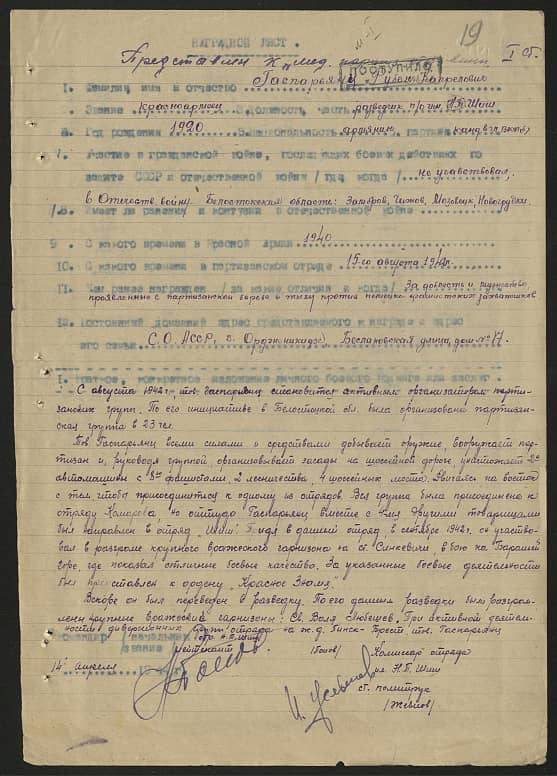 19
НАГРАДНОЙ ЛИСТ.
Представлен к мед. I ст.
ПОСТУПИЛО
1. Фамилия, имя и отчество Гаспарьянц Рубен Капрелович
Звание красноармеец Должность, часть разведчик п/отр. Шиш
Год рождения 1920 Национальность армянин, партийн. канд. ВКП(б)
7. Участие в гражданской войне, последующих боевых действиях по
защите СССР и отечественной войне /где, когда/ не участвовал,
в Отечеств. войну: Белостокская область: Замбров, Чижов, Мазовецк, Новогрудки
8. Имеет ли ранения и контузии в отечественной войне
9. С какого времени в Красной Армии 1940
10. С какого времени в партизанском отряде 15-го августа
11. Чем ранее награжден /за какие отличия и когда/ За доблесть и мужество,
проявленные в партизанской борьбе в тылу против немецко фашистских захватчиков
12. Постоянный домашний адрес представляемого к награде и адрес
его семьи С.О. АССР, г. Орджоникидзе, Беслановская улица, дом № 17.
1. Краткое, конкретное изложение личного боевого подвига или заслуг.
С августа 1942 г. тов. Гаспарьянц становится активным организатором парти-
занских групп. По его инициативе в Белостоцкой обл. была организована партизан-
ская группа в 23 чел.
Тов. Гаспарьянц всеми силами и средствами добывает оружие, вооружает пар-
тизан и, руководя группой, организовывает засады на шоссейной дороге, уничтожает 2е
автомашины с фашистами, 2 лесничества, 4 шоссейных моста. Явился на восток
с тем, чтобы присоединиться к одному из отрядов. Вся группа была присоединена к
отряду Комарова, а оттуда Гаспарьянц вместе с 4-мя другими товарищами
был направлен в отряд "Шиш". Будя в данный отряд в сентябре 1942 г. он участво-
вал в разгроме крупного вражеского гарнизона на ст. Синкевичи, в бою на Бараньей
горе, где показал отличные боевые качества. За указанные боевые деятельности
был представлен к ордену "Красное Знамя".
Вскоре он был переведен в разведку. По его данным разведки были разгром-
лены крупные вражеские гарнизоны: Св. Воля, Любешев. При активной деятель-
ности диверсионных групп отряда на ж.д. Пинск-Брест тов. Гаспарьянц
Командир /начальник/
звание лейтенант /Бонов/
14 апреля
Комиссар отряда
им. Н.П. Шиш
ст. политрук